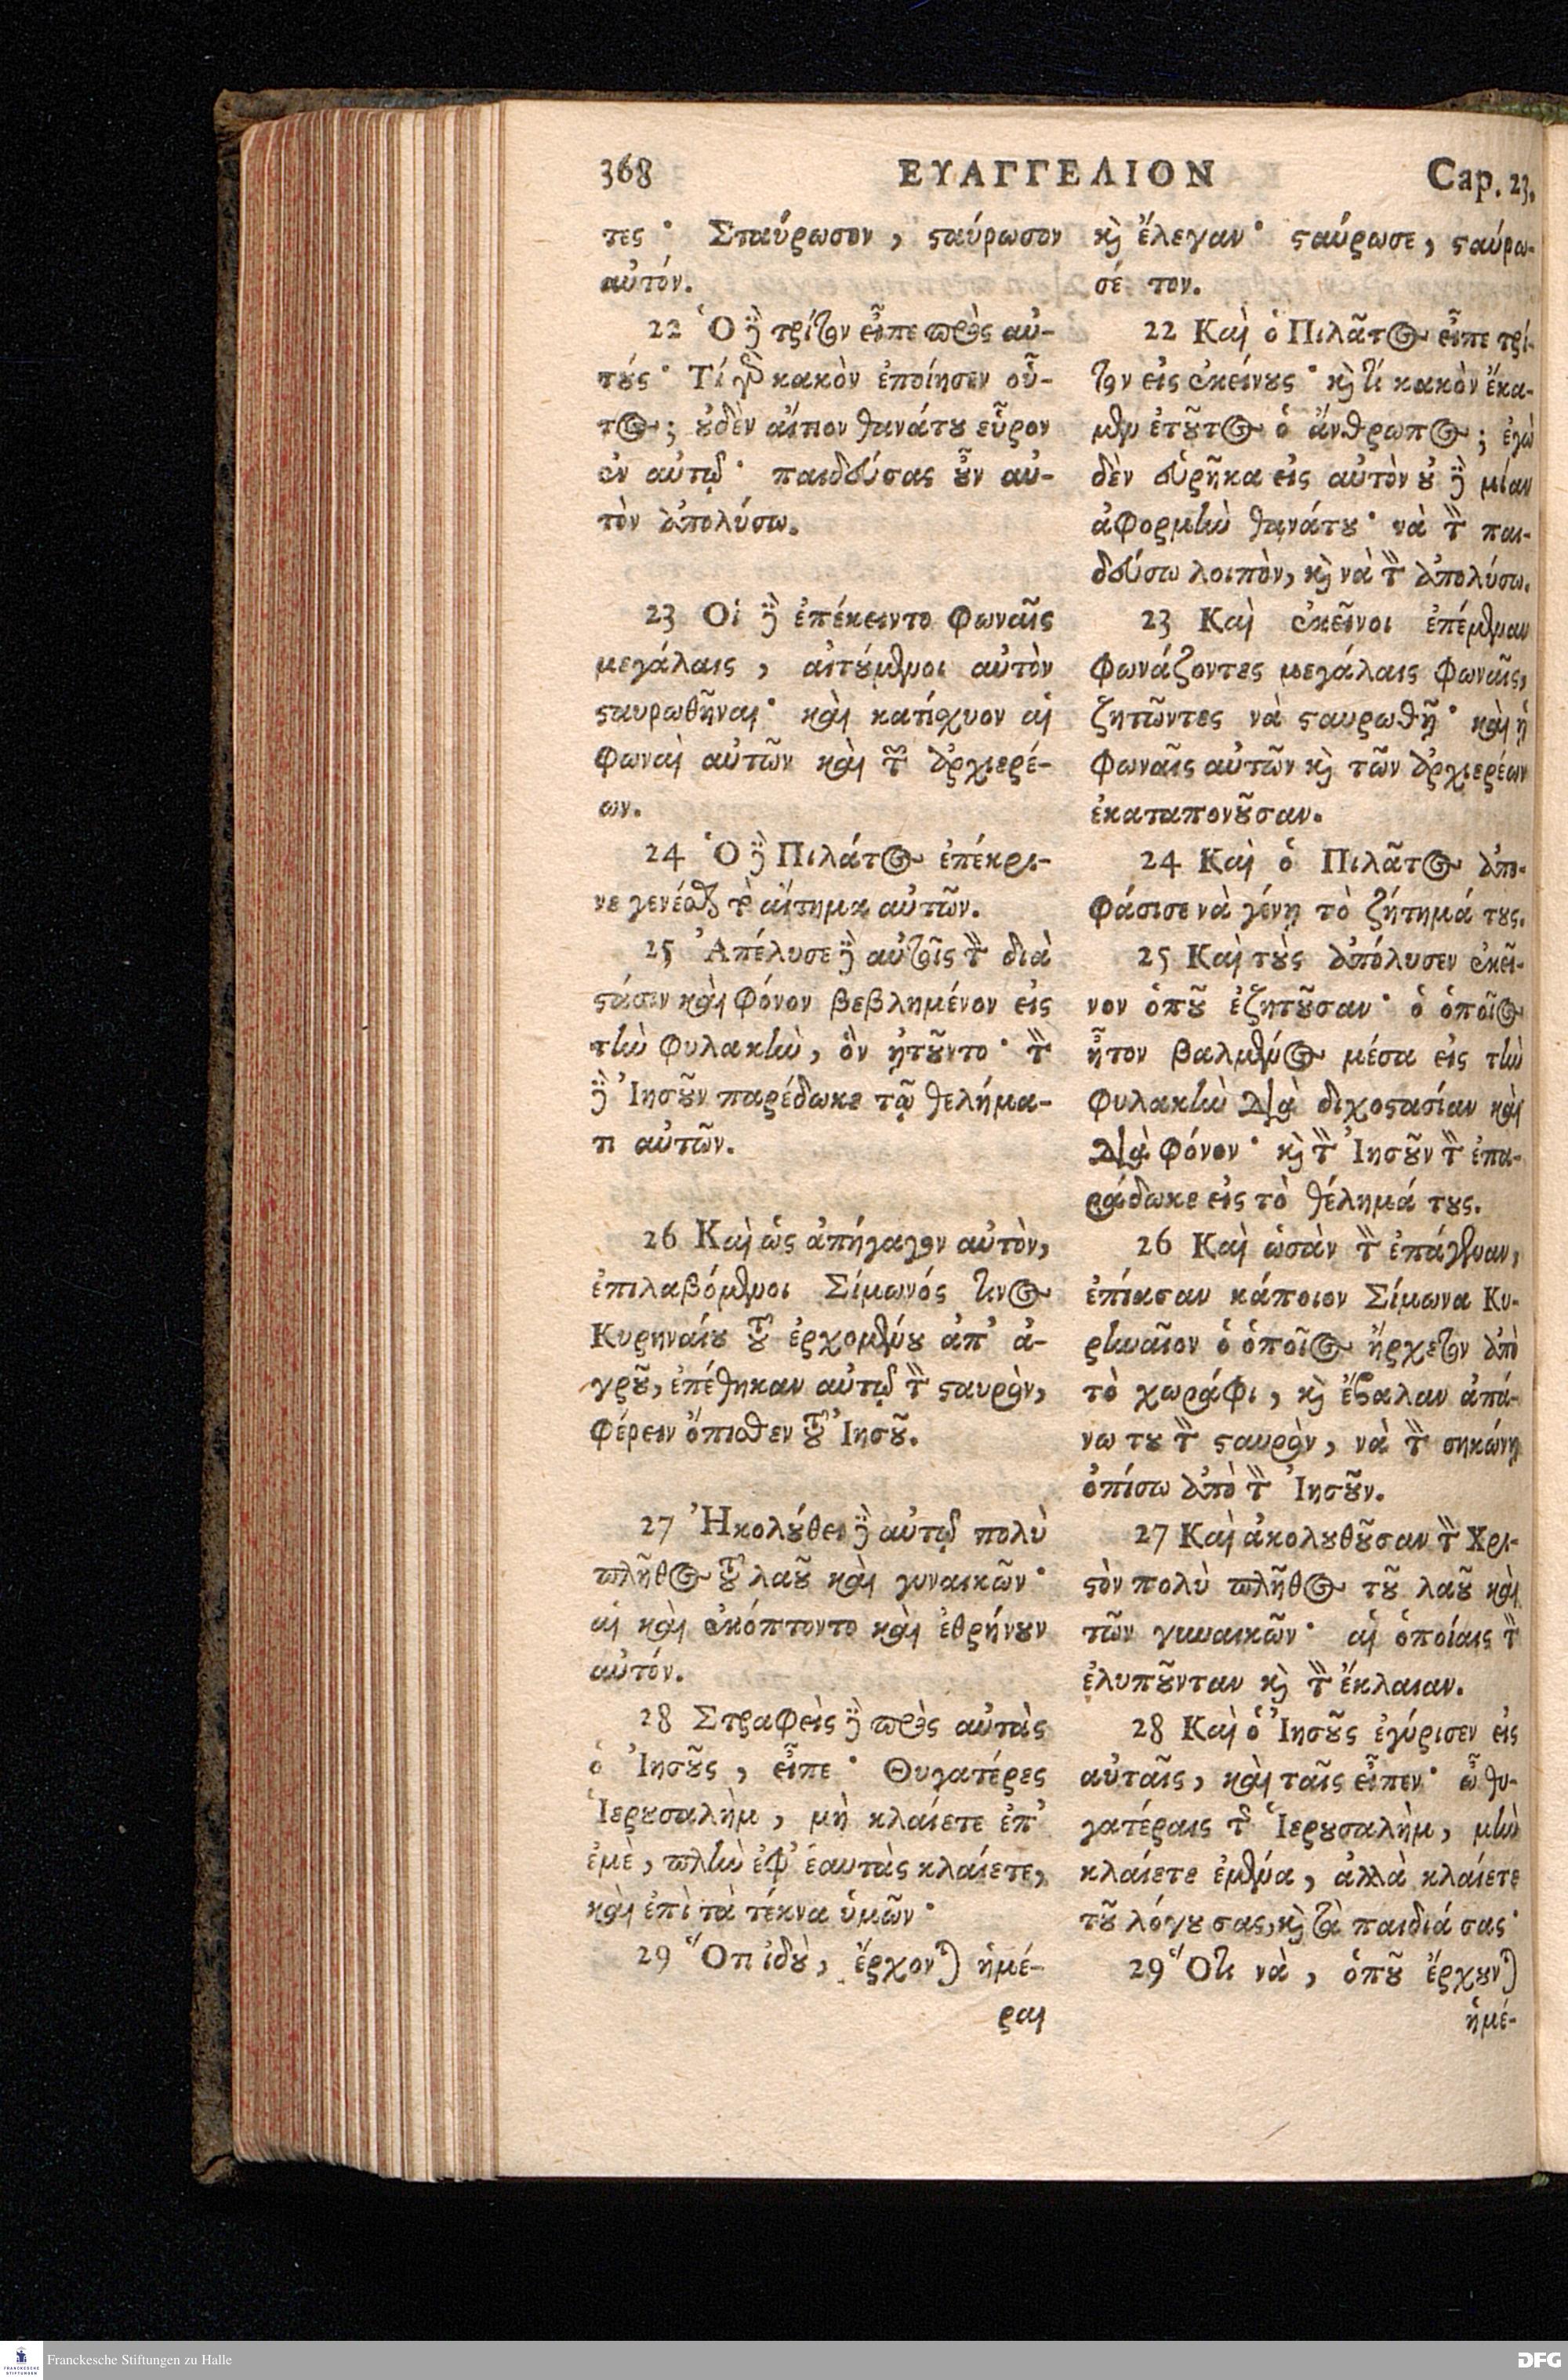 368 ΕΥΑΓΓΕΛΙΟΝ Cap. 23.
τες· Σταύρωσον, ϛαύρωσον
αὐτόν.
22 Ὁ δὲ τρίτον εἶπε πρὸς αὐ-
τούς· Τί γὰρ κακὸν ἐποίησεν οὗ-
τος; οὐδὲν αἴτιον θανάτου εὗρον
ἐν αὐτῷ· παιδεύσας οὖν αὐ-
τὸν ἀπολύσω.
23 Οἱ δὲ ἐπέκειντο φωναῖς
μεγάλαις, αἰτούμενοι αὐτὸν
ϛαυρωθῆναι· καὶ κατίχυον αἱ
φωναὶ αὐτῶν καὶ τῶν ἀρχιερέ-
ων.
24 Ὁ δὲ Πιλάτος ἐπέκρι-
νε γενέσθαι τὸ αἴτημα αὐτῶν.
25 Ἀπέλυσε δὲ αὐτοῖς τὸν διὰ
ϛάσιν καὶ φόνον βεβλημένον εἰς
τὴν φυλακὴν, ὃν ᾐτοῦντο· τὸν
δὲ Ἰησοῦν παρέδωκε τῷ θελήμα-
τι αὐτῶν.
26 Καὶ ὡς ἀπήγαγον αὐτὸν,
ἐπιλαβόμενοι Σίμωνός τινος
Κυρηναίου τοῦ ἐρχομένου ἀπ' ἀ-
γροῦ, ἐπέθηκαν αὐτῷ τὸν ϛαυρὸν,
φέρειν ὄπισθεν τοῦ Ἰησοῦ.
27 Ἠκολούθει δὲ αὐτῷ πολὺ
πλῆθος τοῦ λαοῦ καὶ γυναικῶν·
αἱ καὶ ἐκόπτοντο καὶ ἐθρήνουν
αὐτόν.
28 Στραφεὶς δὲ πρὸς αὐτὰς
ὁ Ἰησοῦς, εἶπε· Θυγατέρες
Ἱερουσαλὴμ, μὴ κλαίετε ἐπ'
ἐμὲ, πλὴν ἐφ' ἑαυτὰς κλαίετε,
καὶ ἐπὶ τὰ τέκνα ὑμῶν·
29 Ὅτι ἰδοὺ, ἔρχονται ἡμέ-
ραι
κὶ ἔλεγαν· ϛαύρωσε, ϛαύρω-
σέ τον.
22 Καὶ ὁ Πιλᾶτος εἶπε τρί-
τον εἰς ἐκείνους· καὶ τί κακὸν ἔκα-
μεν ἐτοῦτος ὁ ἄνθρωπος; ἐγὼ
δὲν εὑρῆκα εἰς αὐτὸν οὐ δὲ μίαν
ἀφορμὴν θανάτου· νὰ τὸν παι-
δεύσω λοιπὸν, καὶ νὰ τὸν ἀπολύσω.
23 Καὶ ἐκεῖνοι ἐπέμεναν
φωνάζοντες μεγάλαις φωναῖς,
ζητῶντες νὰ ϛαυρωθῇ· καὶ ἡ
φωναῖς αὐτῶν καὶ τῶν ἀρχιερέων
ἐκαταπονοῦσαν.
24 Καὶ ὁ Πιλᾶτος ἀπο-
φάσισε νὰ γένῃ τὸ ζήτημά τους.
25 Καὶ τοὺς ἀπόλυσεν ἐκεῖ-
νον ὁποῦ ἐζητοῦσαν· ὁ ὁποῖος
ἦτον βαλμένος μέσα εἰς τὴν
φυλακὴν διὰ διχοϛασίαν καὶ
διὰ φόνον· καὶ τὸν Ἰησοῦν τὸν ἐπα-
ράδωκε εἰς τὸ θέλημά τους.
26 Καὶ ὡσὰν τὸν ἐπάγεναν,
ἐπίασαν κάποιον Σίμωνα Κυ-
ρηναῖον ὁ ὁποῖος ἤρχετον ἀπὸ
τὸ χωράφι, καὶ ἔβαλαν ἀπά-
νω του τὸν ϛαυρὸν, νὰ τὸν σηκώνῃ
ὀπίσω ἀπὸ τὸν Ἰησοῦν.
27 Καὶ ἀκολουθοῦσαν τὸν Χρι-
ϛὸν πολὺ πλῆθος τοῦ λαοῦ καὶ
τῶν γυναικῶν· αἱ ὁποίαις τὸν
ἐλυποῦνταν καὶ τὸν ἔκλαιαν.
28 Καὶ ὁ Ἰησοῦς ἐγύρισεν εἰς
αὐταῖς, καὶ ταῖς εἶπεν· ὦ θυ-
γατέραις τῆς Ἱερουσαλὴμ, μὴν
κλαίετε ἐμένα, ἀλλὰ κλαίετε
τοῦ λόγου σας, καὶ τὰ παιδιά σας·
29 Ὅτι νὰ, ὁποῦ ἔρχουνται
ἡμέ-
Franckesche Stiftungen zu Halle
DFG